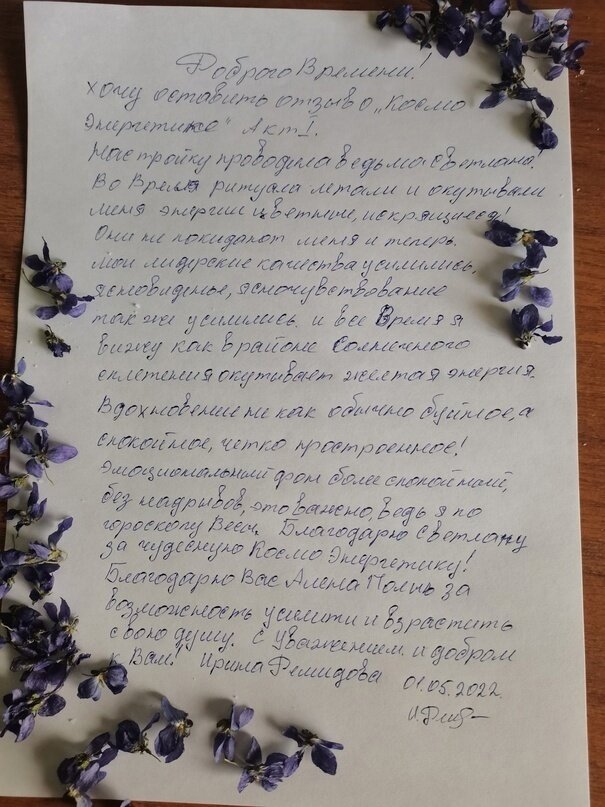 Доброго Времени!
хочу оставить отзыв о „Космо
Энергетике" Акт I.
Настройку проводила ведьма Светлана!
Во Время ритуала летали и окутывали
меня энергии цветные, искрящиеся!
Они не покидают меня и теперь.
мои лидерские качества усилились,
ясновиденье, ясночувствование
так же усилились и все Время я
вижу как в районе Солнечного
сплетения окутывает желтая энергия.
Вдохновение не как обычно буйное, а
спокойное, четко простроенное!
Эмоциональный фон более спокойный,
без надрывов, это важно, ведь я по
гороскопу Весы. Благодарю Светлану
за чудесную Космо Энергетику!
Благодарю Вас Алена Полынь за
возможность усилить и взрастить
свою душу. С уважением и добром
к Вам! Ирина Демидова 01.05.2022.